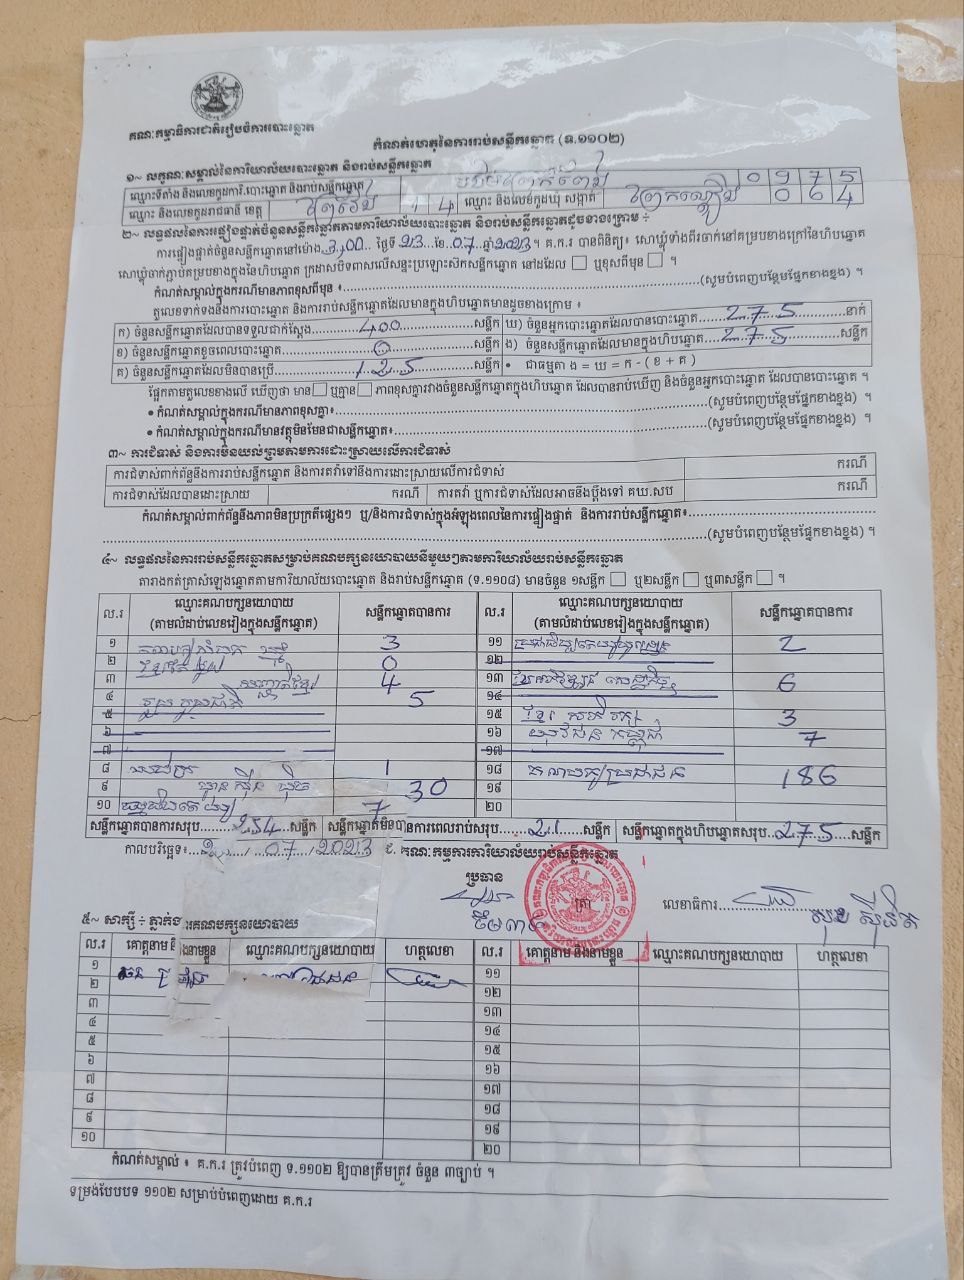 គណៈកម្មាធិការជាតិរៀបចំការបោះឆ្នោត
កំណត់ហេតុនៃការរាប់សន្លឹកឆ្នោត (ទ.១១០២)
១~ លក្ខណៈសម្គាល់នៃការិយាល័យបោះឆ្នោត និងរាប់សន្លឹកឆ្នោត
ឈ្មោះទីតាំង និងលេខកូដការិ.បោះឆ្នោត និងរាប់សន្លឹកឆ្នោត 0 9 7 5
ឈ្មោះ និងលេខកូដរាជធានី ខេត្ត ព្រៃវែង 1 4 ឈ្មោះ និងលេខកូដឃុំ សង្កាត់ 0 6 4
២~ លទ្ធផលនៃការផ្ទៀងផ្ទាត់ចំនួនសន្លឹកឆ្នោតតាមការិយាល័យបោះឆ្នោត និងរាប់សន្លឹកឆ្នោតដូចខាងក្រោម ÷
ការផ្ទៀងផ្ទាត់ចំនួនសន្លឹកឆ្នោតនៅម៉ោង 3,00 ថ្ងៃទី 23 ខែ 07 ឆ្នាំ 2023 ។ គ.ក.រ បានពិនិត្យ៖ សោឃ្លុំទាំងពីរចាក់នៅគម្របខាងក្រៅនៃហិបឆ្នោត
សោឃ្លុំចាក់ភ្ជាប់គម្របខាងក្នុងនៃហិបឆ្នោត ក្រដាសបិទពាសលើសន្ទះប្រឡោះស៊កសន្លឹកឆ្នោត នៅដដែល ☐ ឬខុសពីមុន ☐ ។
កំណត់សម្គាល់ក្នុងករណីមានភាពខុសពីមុន ៖ (សូមបំពេញបន្ថែមផ្នែកខាងខ្នង) ។
តួលេខទាក់ទងនឹងការបោះឆ្នោត និងការរាប់សន្លឹកឆ្នោតដែលមានក្នុងហិបឆ្នោតមានដូចខាងក្រោម ៖
ក) ចំនួនសន្លឹកឆ្នោតដែលបានទទួលជាក់ស្តែង 400 សន្លឹក ឃ) ចំនួនអ្នកបោះឆ្នោតដែលបានបោះឆ្នោត 275 នាក់
ខ) ចំនួនសន្លឹកឆ្នោតខូចពេលបោះឆ្នោត 0 សន្លឹក ង) ចំនួនសន្លឹកឆ្នោតដែលមានក្នុងហិបឆ្នោត 275 សន្លឹក
គ) ចំនួនសន្លឹកឆ្នោតដែលមិនបានប្រើ 125 សន្លឹក • ជាធម្មតា ង = ឃ = ក - ( ខ + គ )
ផ្អែកតាមតួលេខខាងលើ ឃើញថា មាន ☐ ឬគ្មាន ☐ ភាពខុសគ្នារវាងចំនួនសន្លឹកឆ្នោតក្នុងហិបឆ្នោត ដែលបានរាប់ឃើញ និងចំនួនអ្នកបោះឆ្នោត ដែលបានបោះឆ្នោត ។
• កំណត់សម្គាល់ក្នុងករណីមានភាពខុសគ្នា៖ (សូមបំពេញបន្ថែមផ្នែកខាងខ្នង) ។
• កំណត់សម្គាល់ក្នុងករណីមានវត្ថុមិនមែនជាសន្លឹកឆ្នោត៖ (សូមបំពេញបន្ថែមផ្នែកខាងខ្នង) ។
៣~ ការជំទាស់ និងការមិនយល់ព្រមតាមការដោះស្រាយលើការជំទាស់
ការជំទាស់ពាក់ព័ន្ធនឹងការរាប់សន្លឹកឆ្នោត និងការតវ៉ាទៅនឹងការដោះស្រាយលើការជំទាស់ ករណី
ការជំទាស់ដែលបានដោះស្រាយ ករណី ការតវ៉ា ឬការជំទាស់ដែលអាចនឹងប្តឹងទៅ គឃ.សប ករណី
កំណត់សម្គាល់ពាក់ព័ន្ធនឹងភាពមិនប្រក្រតីផ្សេងៗ ឬ/និងការជំទាស់ក្នុងអំឡុងពេលនៃការផ្ទៀងផ្ទាត់ និងការរាប់សន្លឹកឆ្នោត៖
(សូមបំពេញបន្ថែមផ្នែកខាងខ្នង) ។
៤~ លទ្ធផលនៃការរាប់សន្លឹកឆ្នោតសម្រាប់គណបក្សនយោបាយនីមួយៗតាមការិយាល័យរាប់សន្លឹកឆ្នោត
តារាងកត់ត្រាសំឡេងឆ្នោតតាមការិយាល័យបោះឆ្នោត និងរាប់សន្លឹកឆ្នោត (ទ.១១០៨) មានចំនួន ១សន្លឹក ☐ ឬ២សន្លឹក ☐ ឬ៣សន្លឹក ☐ ។
ល.រ ឈ្មោះគណបក្សនយោបាយ (តាមលំដាប់លេខរៀងក្នុងសន្លឹកឆ្នោត) សន្លឹកឆ្នោតបានការ ល.រ ឈ្មោះគណបក្សនយោបាយ (តាមលំដាប់លេខរៀងក្នុងសន្លឹកឆ្នោត) សន្លឹកឆ្នោតបានការ
១ 3 ១១ 2
២ 0 ១២
៣ 4 ១៣ 6
៤ 5 ១៤
៥ ១៥ 3
៦ ១៦ 7
៧ ១៧
៨ 1 ១៨ គណបក្សប្រជាជន 186
៩ ហ្វ៊ុនស៊ិនប៉ិច 30 ១៩
១០ 7 ២០
សន្លឹកឆ្នោតបានការសរុប 254 សន្លឹក សន្លឹកឆ្នោតមិនបានការពេលរាប់សរុប 21 សន្លឹក សន្លឹកឆ្នោតក្នុងហិបឆ្នោតសរុប 275 សន្លឹក
កាលបរិច្ឆេទ៖ / 07 / 2023 គណៈកម្មការការិយាល័យរាប់សន្លឹកឆ្នោត
ប្រធាន
លេខាធិការ
៥~ សាក្សី ÷ ភ្នាក់ងារគណបក្សនយោបាយ
ល.រ គោត្តនាម និងនាមខ្លួន ឈ្មោះគណបក្សនយោបាយ ហត្ថលេខា ល.រ គោត្តនាម និងនាមខ្លួន ឈ្មោះគណបក្សនយោបាយ ហត្ថលេខា
១ ១១
២ ១២
៣ ១៣
៤ ១៤
៥ ១៥
៦ ១៦
៧ ១៧
៨ ១៨
៩ ១៩
១០ ២០
កំណត់សម្គាល់ ៖ គ.ក.រ ត្រូវបំពេញ ទ.១១០២ ឱ្យបានត្រឹមត្រូវ ចំនួន ៣ច្បាប់ ។
ទម្រង់បែបបទ ១១០២ សម្រាប់បំពេញដោយ គ.ក.រ